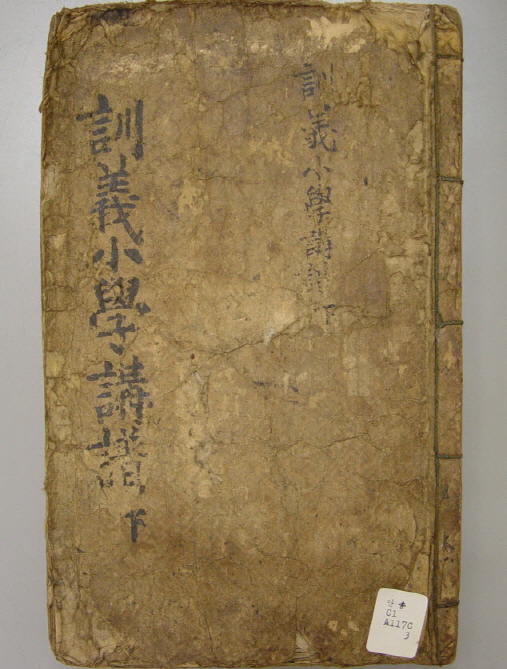 訓義小學講譜下
訓義小學講譜下
C1
A117C
3